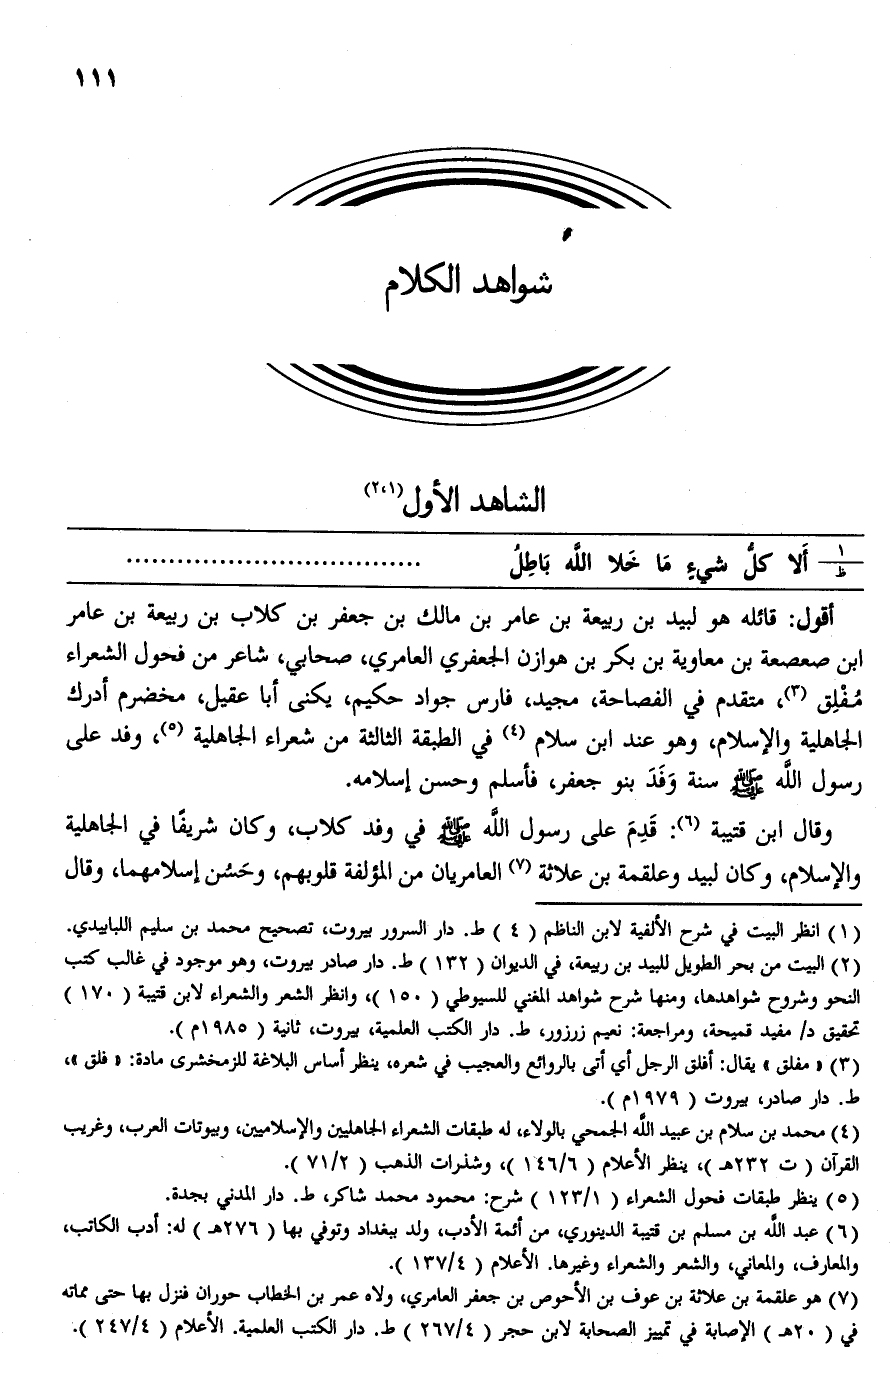 ١١١
شواهد الكلام
الشاهد الأول(١،٢)
١/ظ أَلا كلُّ شيءٍ مَا خَلا اللَّه بَاطِلُ ..................................
أقول: قائله هو لبيد بن ربيعة بن عامر بن مالك بن جعفر بن كلاب بن ربيعة بن عامر
ابن صعصعة بن معاوية بن بكر بن هوازن الجعفري العامري، صحابي، شاعر من فحول الشعراء
مُفْلِق (٣)، متقدم في الفصاحة، مجيد، فارس جواد حكيم، يكنى أبا عقيل، مخضرم أدرك
الجاهلية والإسلام، وهو عند ابن سلام (٤) في الطبقة الثالثة من شعراء الجاهلية (٥)، وفد على
رسول اللَّه ﷺ سنة وَفَدَ بنو جعفر، فأسلم وحسن إسلامه.
وقال ابن قتيبة (٦): قَدِمَ على رسول اللَّه ﷺ في وفد كلاب، وكان شريفًا في الجاهلية
والإسلام، وكان لبيد وعلقمة بن علاثة (٧) العامريان من المؤلفة قلوبهم، وحَسُن إسلامهما، وقال
(١) انظر البيت في شرح الألفية لابن الناظم ( ٤ ) ط. دار السرور بيروت، تصحيح محمد بن سليم اللبابيدي.
(٢) البيت من بحر الطويل للبيد بن ربيعة، في الديوان ( ١٣٢ ) ط. دار صادر بيروت، وهو موجود في غالب كتب
النحو وشروح شواهدها، ومنها شرح شواهد المغني للسيوطي ( ١٥٠ )، وانظر الشعر والشعراء لابن قتيبة ( ١٧٠ )
تحقيق د/ مفيد قميحة، ومراجعة: نعيم زرزور، ط. دار الكتب العلمية، بيروت، ثانية ( ١٩٨٥م ).
(٣) « مفلق » يقال: أفلق الرجل أي أتى بالروائع والعجيب في شعره، ينظر أساس البلاغة للزمخشرى مادة: « فلق »،
ط. دار صادر، بيروت ( ١٩٧٩م ).
(٤) محمد بن سلام بن عبيد اللَّه الجمحي بالولاء، له طبقات الشعراء الجاهليين والإسلاميين، وبيوتات العرب، وغريب
القرآن ( ت ٢٣٢هـ )، ينظر الأعلام ( ١٤٦/٦ )، وشذرات الذهب ( ٧١/٢ ).
(٥) ينظر طبقات فحول الشعراء ( ١٢٣/١ ) شرح: محمود محمد شاكر، ط. دار المدني بجدة.
(٦) عبد اللَّه بن مسلم بن قتيبة الدينوري، من أئمة الأدب، ولد ببغداد وتوفي بها ( ٢٧٦هـ ) له: أدب الكاتب،
والمعارف، والمعاني، والشعر والشعراء وغيرها. الأعلام ( ١٣٧/٤ ).
(٧) هو علقمة بن علاثة بن عوف بن الأحوص بن جعفر العامري، ولاه عمر بن الخطاب حوران فنزل بها حتى مماته
في ( ٢٠هـ ) الإصابة في تمييز الصحابة لابن حجر ( ٢٦٧/٤ ) ط. دار الكتب العلمية. الأعلام ( ٢٤٧/٤ ).